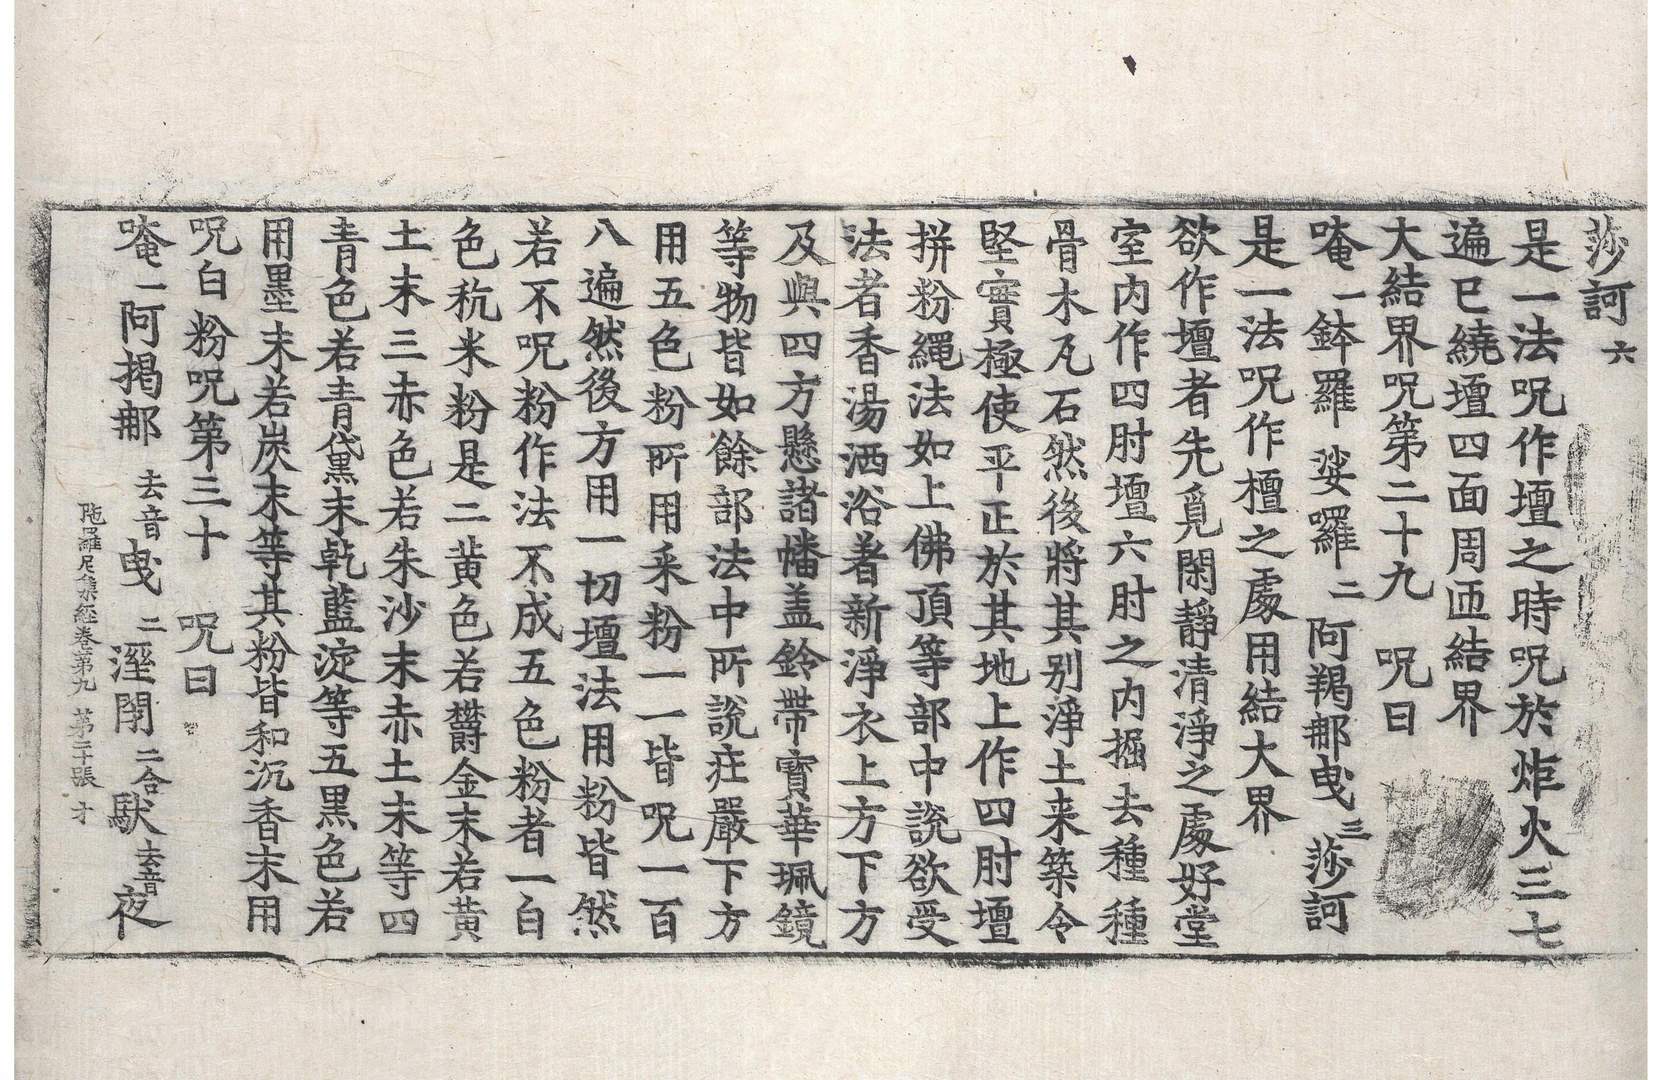 莎訶六
是一法呪作壇之時呪於炬火三七
遍已繞壇四面周迊結界
大結界呪第二十九　呪曰
唵一鉢羅娑囉二阿羯郍曳三莎訶
是一法呪作檀之處用結大界
欲作壇者先覓閑靜清淨之處好堂
室內作四肘壇六肘之內掘去種種
骨木瓦石然後將其別淨土来築令
堅實極使平正於其地上作四肘壇
拼粉繩法如上佛頂等部中說欲受
法者香湯洒浴著新淨衣上方下方
及與四方懸諸幡盖鈴帶寶華珮鏡
等物皆如餘部法中所說莊嚴下方
用五色粉所用釆粉一一皆呪一百
八遍然後方用一切壇法用粉皆然
若不呪粉作法不成五色粉者一白
色秔米粉是二黄色若欝金末若黄
土末三赤色若朱沙末赤土末等四
青色若青黛末乹藍淀等五黑色若
用墨末若炭末等其粉皆和沉香末用
呪白粉呪第三十　呪曰
唵一阿揭郍去音曳二溼閇二合䭾去音夜
陁羅尼集經卷第九　第二十張　才